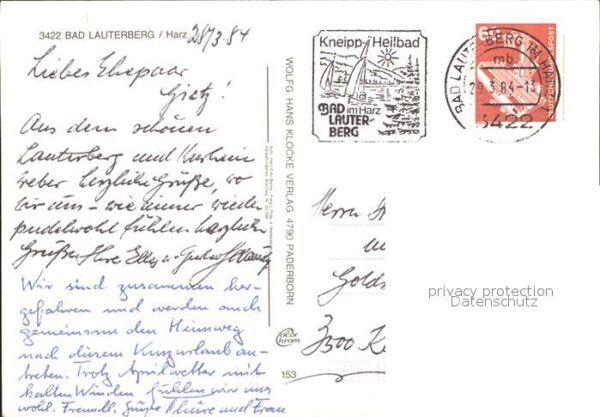 3422 BAD LAUTERBERG / Harz
28/3.84
Liebes Ehepaar
Gietz!
Aus dem schönen
Lauterberg und Kurheim
weber herzliche Grüße, wo
wir uns - wie immer wieder
pudelwohl fühlen. Herzliche
Grüßen Ihre Elly u. Gustav
Wir sind zusammen her-
gefahren und werden auch
gemeinsam den Heimweg
nach diesem Kurzurlaub an-
treten. Trotz Aprilwetter mit
kalten Winden fühlen wir uns
wohl. Freundl. Grüße und Frau
WOLFG. HANS KLOCKE VERLAG 4790 PADERBORN
153
Kneipp-Heilbad
BAD
im Harz
LAUTER-
BERG
BAD LAUTERBERG IM HARZ
mb
29.3.84-1
3422
60
Herrn
Golds
3500 K
privacy protection
Datenschutz